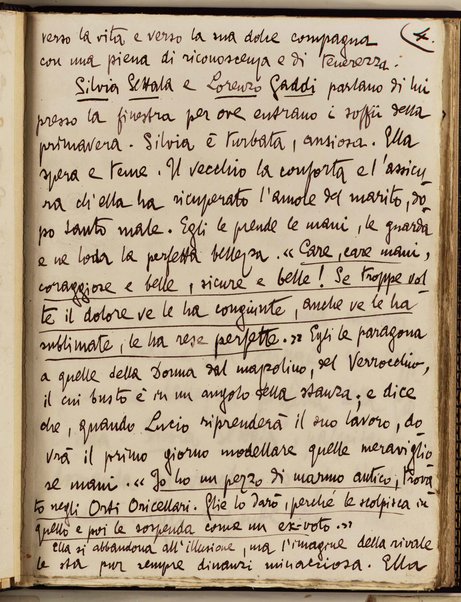 4.
verso la vita e verso la sua dolce compagna
con una piena di riconoscenza e di tenerezza:
Silvia Settala e Lorenzo Gaddi parlano di lui
presso la finestra per ove entrano i soffii della
primavera. Silvia è turbata, ansiosa. Ella
spera e teme. Il vecchio la conforta e l'assicu-
ra ch'ella ha ricuperato l'amore del marito, do-
po tanto male. Egli le prende le mani, le guarda
e ne loda la perfetta bellezza. « Care, care mani,
coraggiose e belle, sicure e belle! Se troppe vol-
te il dolore ve le ha congiunte, anche ve le ha
sublimate, le ha rese perfette. » Egli le paragona
a quelle della Donna dal mazzolino, del Verrocchio,
il cui busto è in un angolo della stanza; e dice
che, quando Lucio riprenderà il suo lavoro, do-
vrà il primo giorno modellare quelle meraviglio-
se mani. « Io ho un pezzo di marmo antico, trova-
to negli Orti Oricellari. Glie lo darò, perché le scolpisca in
quello e poi le sospenda come un ex-voto. »
Ella si abbandona all'illusione, ma l'imagine della rivale
le sta pur sempre dinanzi minacciosa. Ella